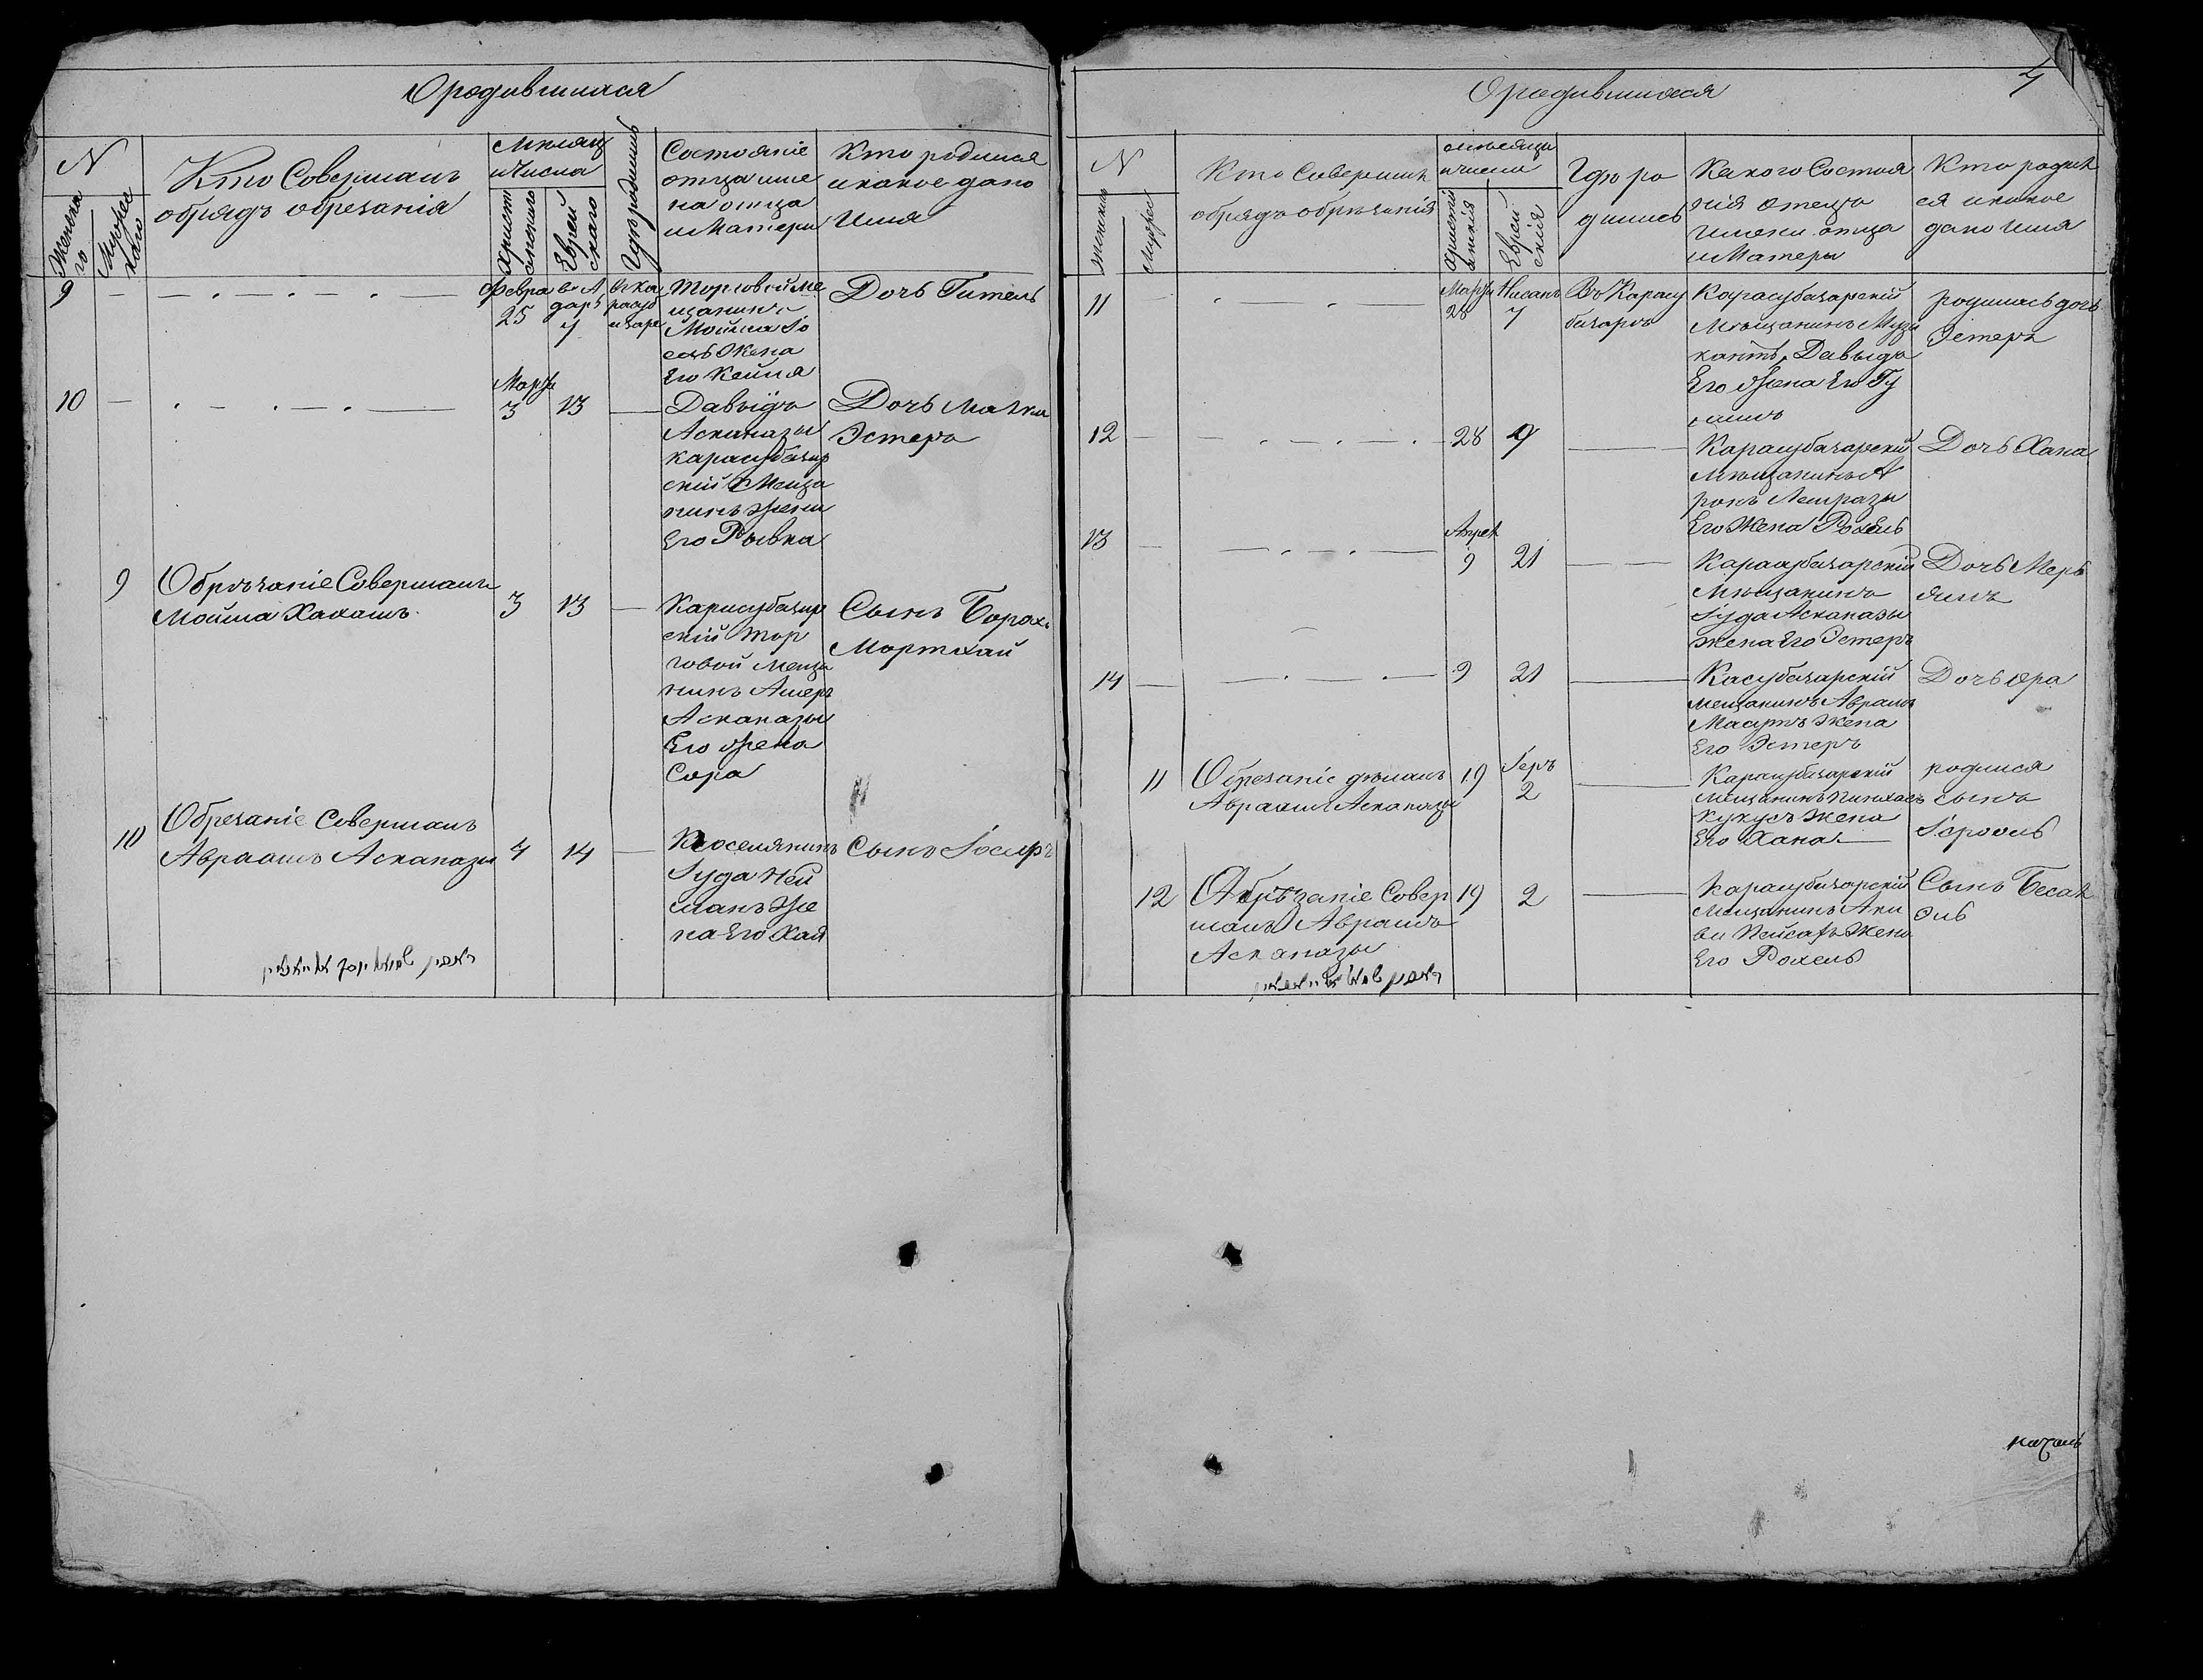 О родившихся
N
Женска
го
Мужес
каго
Кто Совершалъ
обрядъ обрезанія
Месяцъ
и Числа
Христі
анскаго
Еврей
скаго
Где родились
Состояніе
отца име
на отца
и Матери
Кто родился
и какое дано
Имя
9
Февра
25
в А
даръ
4
Въ Ка
расуб
изаре
Торговой Ме
щанинъ
Мойша Іо
Жена
Его Кейля
Дочь Гитель
10
Марта
3
13
Давыдъ
Асканазы
Карасубазар
скій Меща
нинъ жена
Его Рывка
Дочь Малка
Эстеръ
9
Обрѣзаніе Совершалъ
Мойша Хахамъ.
3
13
Карасубазар
скій Тор
говой Меща
нинъ Ашеръ
Асканазы
Его жена
Сора
Сынъ Борохъ
Мортхай
10
Обрезаніе Совершалъ
Авраамъ Асканазы
4
14
Поселянинъ
Іуда Ней
манъ Же
на Его Хая
Сынъ Іосифъ
О родившихся
4
N
Женскихъ
Мужес
Кто Совершилъ
обрядъ обрѣзанія
мѣсяца
и числа
Христіа
нскія
Еврей
скія
Гдѣ ро
дились
Какого Состоя
нія отецъ
Имени отца
и Матери
Кто родил
ся и какое
дано Имя
11
Марта
28
Нисанъ
7
Въ Карасу
базаръ
Карасубазарскій
Мѣщанинъ Музы
кантъ Давыдъ
Его жена Его
родилась дочь
Эстеръ
12
28
9
Карасубазарскій
Мѣщанинъ А
ронъ
Его Жена Рохель
Дочь Хана
13
Апрел
9
21
Карасубазарскій
Мѣщанинъ
Іуда Асканазы
Жена Его Эстеръ
Дочь Мерь
ямъ
14
9
21
Касубазарскій
мещанинъ Аврамъ
Жена
Его Эстеръ
Дочь Фра
11
Обрезаніе дѣлалъ
Авраамъ Асканазы
19
Іеръ
2
Карасубазарскій
Мещанинъ Пинхасъ
Кукусъ Жена
Его Хана
родился
сынъ
Ісроэль
12
Обрѣзаніе Совер
шалъ Аврамъ
Асканазы
19
2
Карасубазарскій
Мещанинъ Аки
ва Пейсахъ Жена
Его Рохель
Сынъ Бесал
эль